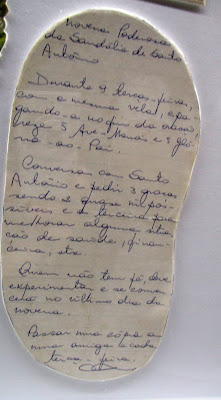 Novena Poderosa
da Sandália de Santo
Antônio
Durante 9 terças-feiras,
com a mesma vela, apa
gando-a no fim da oração
reza 5 Ave-Marias e 5 Gló
ria-ao-Pai.
Conversar com Santo
Antônio e pedir 3 graças
sendo 2 quase impos
síveis e a terceira para
melhorar alguma situa
ção de saúde, finan
ceira, etc.
Quem não tem fé deve
experimentar e se conven
cerá no último dia da
novena.
Passar uma cópia a
uma amiga a cada
terça-feira.